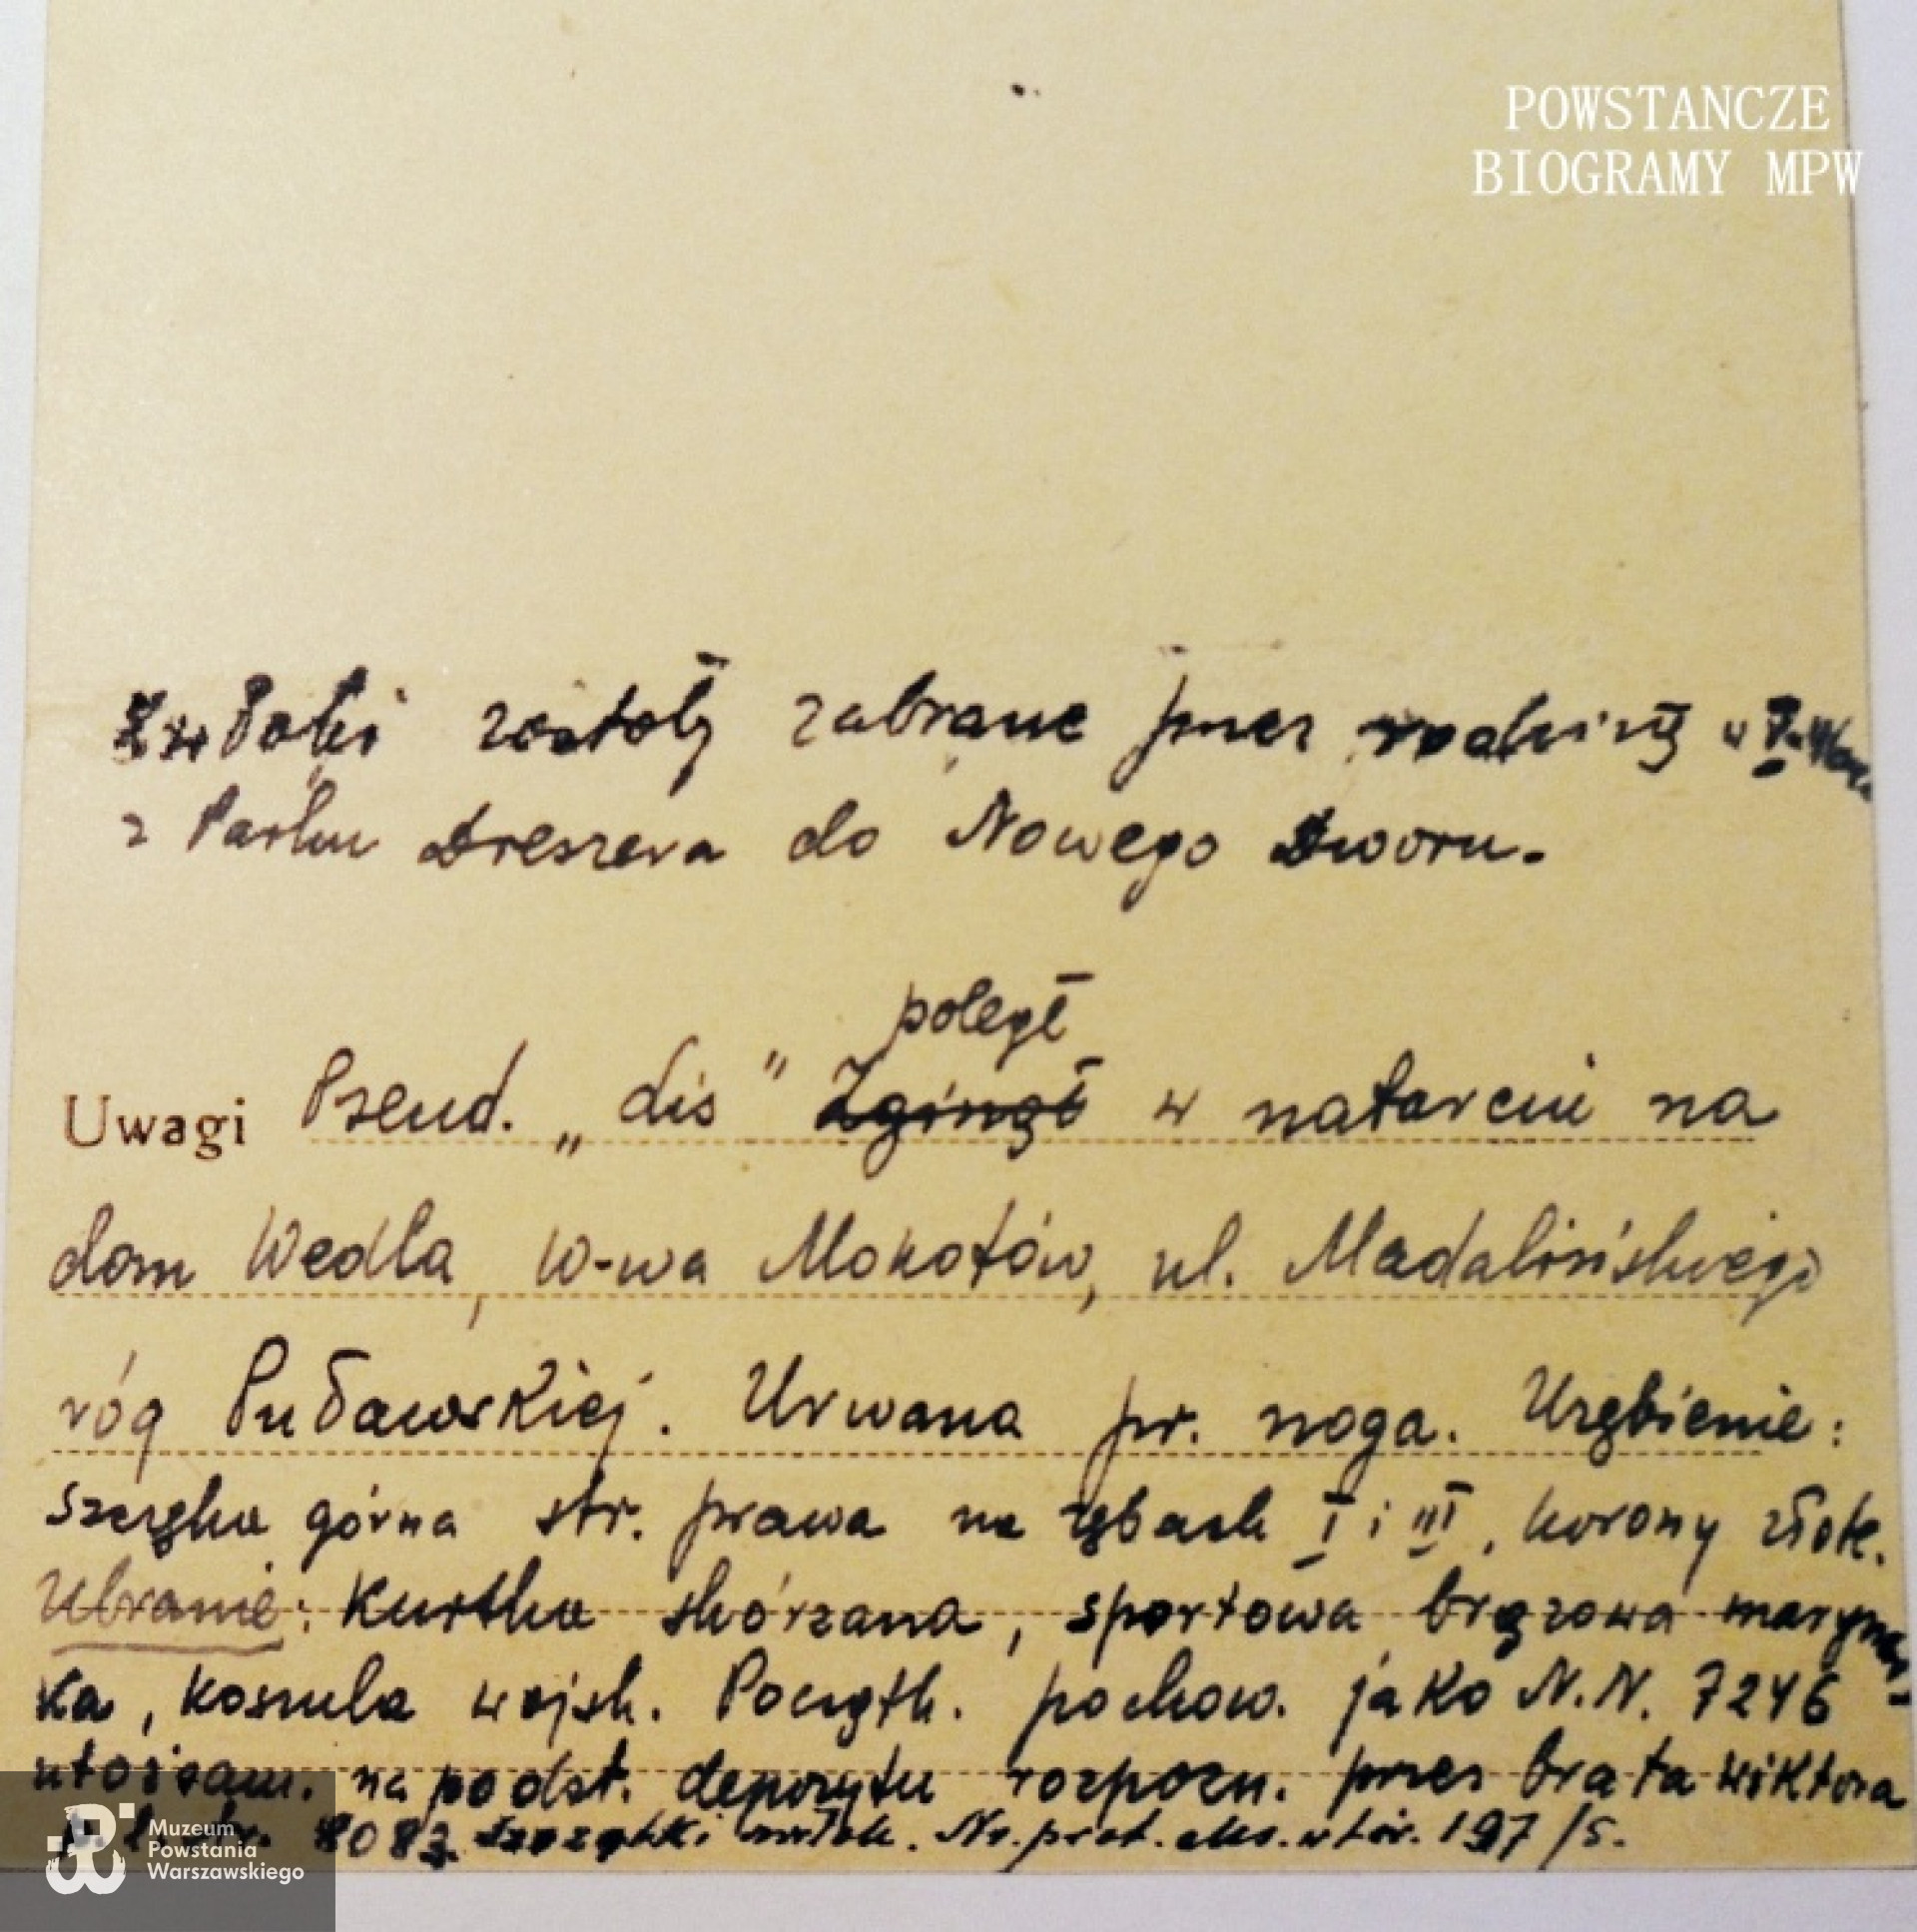 POWSTANCZE
BIOGRAMY MPW
Zwłoki zostały zabrane przez rodzinę w
z Parku Dreszera do Nowego Dworu.
poległ
Uwagi Pseud. „Lis" Zginął w natarciu na
dom Wedla, W-wa Mokotów, ul. Madalińskiego
róg Puławskiej. Urwana pr. noga. Uzębienie:
Szczęka górna str. prawa na zębach I i III, korony złote.
Ubranie: Kurtka skórzana, sportowa brązowa maryna-
ka, koszula wojsk. Początk. pochow. jako N.N. 7246
utożsam. na podst. depozytu rozpozn. przez brata Wiktora
8083 Szczątki zwłok. Nr. prot. eks. wtór. 197/5.
Muzeum
Powstania
Warszawskiego